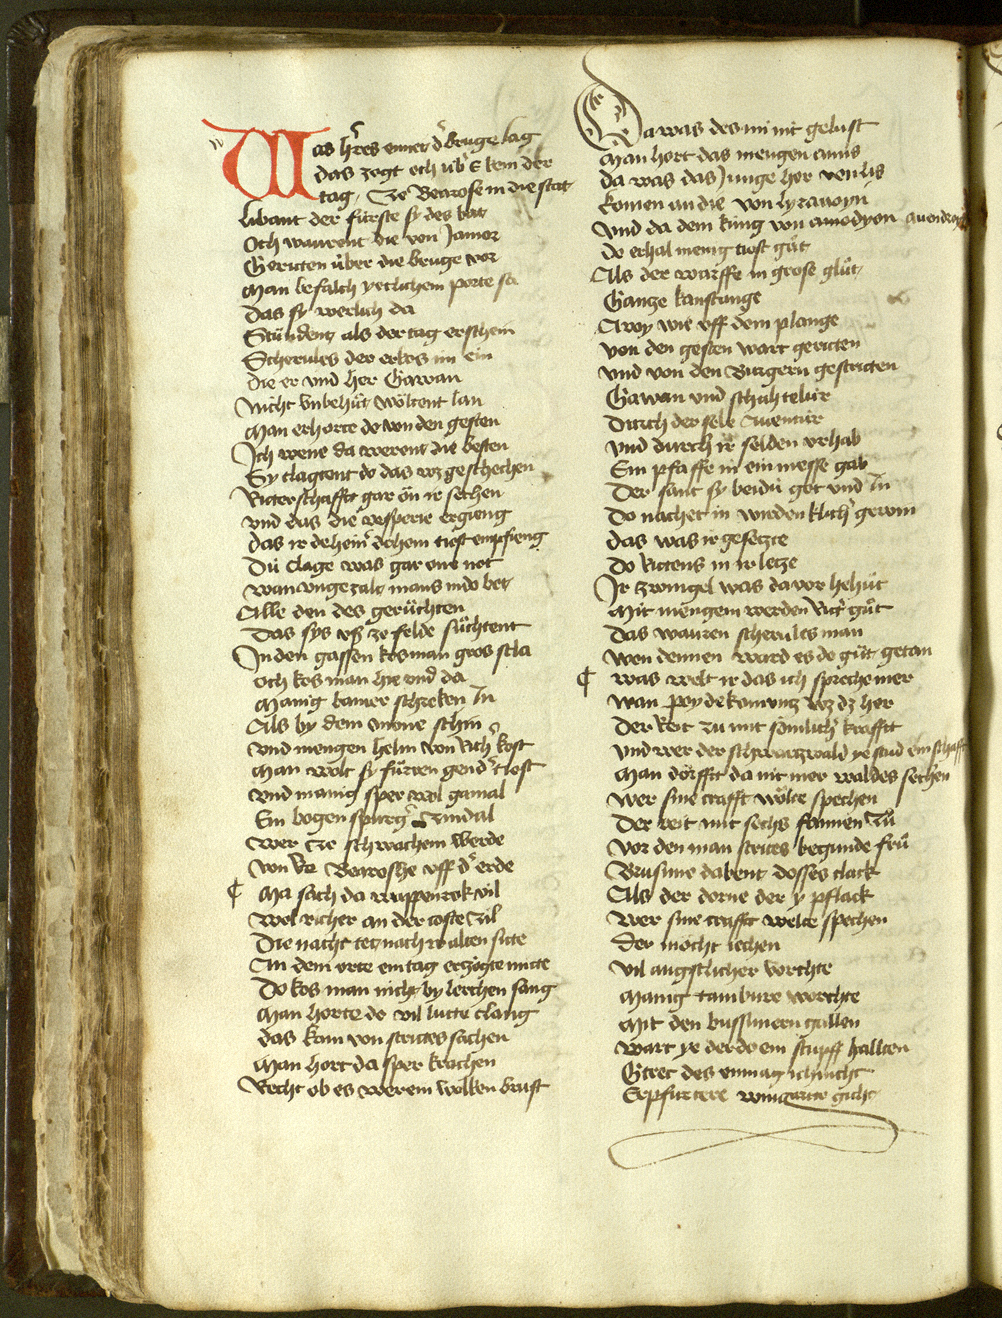 w
Was h͛res ennet d͛ bruge lag
das zogt och úb͛ E kem der
tag, Ze Bearose in die stat
libant der fúrste sy des bat
Och warrent die von Jamor
Geritten über die bruge vor
Man befalch yetlichem porte sa
Das sy werlich da
Stúndent als der tag erschein
Scherules der erkos im ein
die er vnd her Gawan
Nicht vnbehút wöltent lan
Man erhorte do von den gesten
Ich wene da werent die besten
Sy clagtent do das wz geschechen
Ritterschafft gar ön ir sechen
vnd das die vesperie ergieng
das ir dehein͛ dehem tiost empfieng
Dú clage was gar one not
wan vngezalt mans indo bot
Alle den des gerúchten
Das sys vß ze felde súchtent
In den gassen kos man gros scla
och kos man hie vnd da
Manig baner schreken In
Als by dem mone schin
vnd mengen helm von rich͛ kost
Man wolt sy fúrren gend͛ tiost
vnd manig sper wol gamal
Ein bogenspurg͛ Zindal
wer Ze schwachem werde
von vor Bearosche vff d͛ erde
¶ Ma sach da wappenrok vil
wol richer an der coste zil
Die nacht tet nach ir alten sitte
An dem orte ein tag erzögte mitte
Do kos man nicht by lerchen sang
Man horte do vil lutte clang
das kam von strittes sachen
Man hort da sper krachen
Recht ob es wer ein wölken brust
Da was des nimit gelust
Man hort das mengen anis
da was das Junge her von lis
komen an die von lyravoyn
vnd da dem kúng von avendroyn
do erhal menig tiost gút
Als der wúrffe in grose glút
Gantze kanstange
Awoy wie vff dem plange
von den gesten wart geritten
vnd von den Burgern gestritten
Gawan vnd schahtelúr
Durch der sele Aventúr
vnd durch ir selden vrhab
Ein pfaffe in ein messe gab
Der sant sy beidú got vnd In
Do nachet in wirdenklich͛ gewin
das was ir gesetzte
Do rittens in ir letze
Ir zwingel was da vor behút
Mit mengem werden ritt͛ gút
Das wauren scherules man
von dennen ward es do gút getan
¶ was welt ir das ich spreche mer
wan poydekonuntz wz dz her
Der reit zu mit sömlich͛ krafft
vnd wer der schwartzwald ye stud ein schafft
Man dörfft da nit mer waldes sechen
wer sine crafft wölte spechen
Der reit mit sechs fannen Zú
vor den man strites begunde frú
Busune da bent dosses clack
Als der donre der y pflack
wer sine crafft welte spechen
der mocht iechen
vil angstlicher vorchte
Manig tambure worchte
Mit den bussunern gallen
wart ye der do ein stupff hallten
Gtret des enmag ich nicht
Erpfurtere wingarte gicht